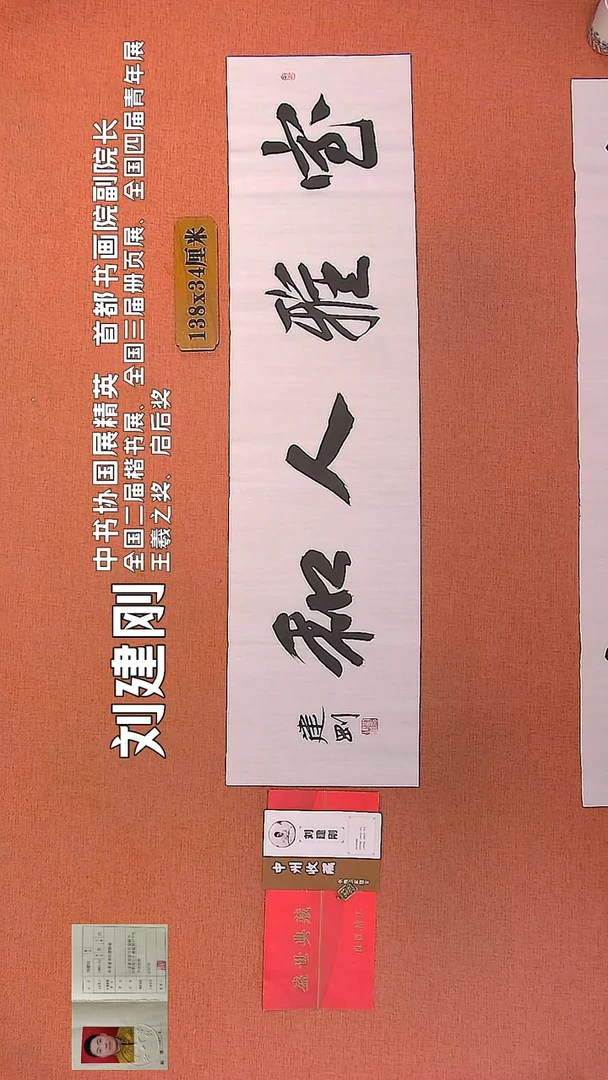 刘建刚
中书协国展精英 首都书画院副院长
全国二届楷书展、全国三届册页展、全国四届青年展
王羲之奖、启后奖
138x34厘米
室雅人和
建刚
刘建刚
中州收藏
盛世典藏